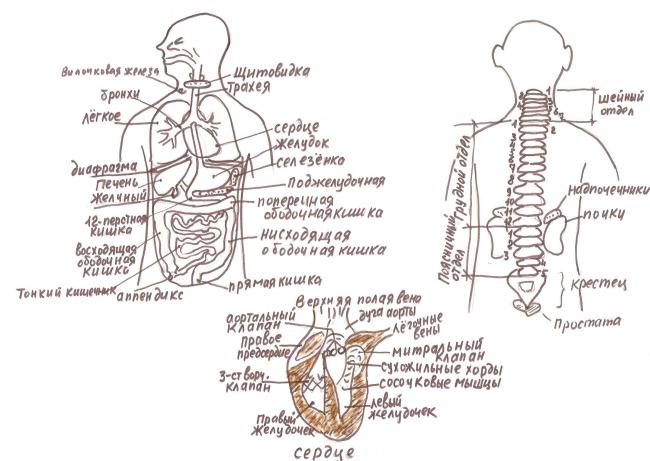 Вилочковая железа
бронхи
лёгкое
диафрагма
Печень
Желчный
12-перстная
кишка
восходящая
ободочная
кишка
Тонкий кишечник
аппендикс
Щитовидка
трахея
сердце
желудок
селезёнка
Поджелудочная
поперечная
ободочная кишка
нисходящая
ободочная кишка
прямая кишка
Шейный
отдел
Грудной отдел
Поясничный
отдел
Надпочечники
почки
крестец
Простата
Верхняя полая вена
аортальный
клапан
дуга аорты
лёгочные
вены
правое
предсердие
митральный
клапан
сухожильные хорды
3-створч.
клапан
сосочковые мышцы
левый
желудочек
Правый
желудочек
сердце